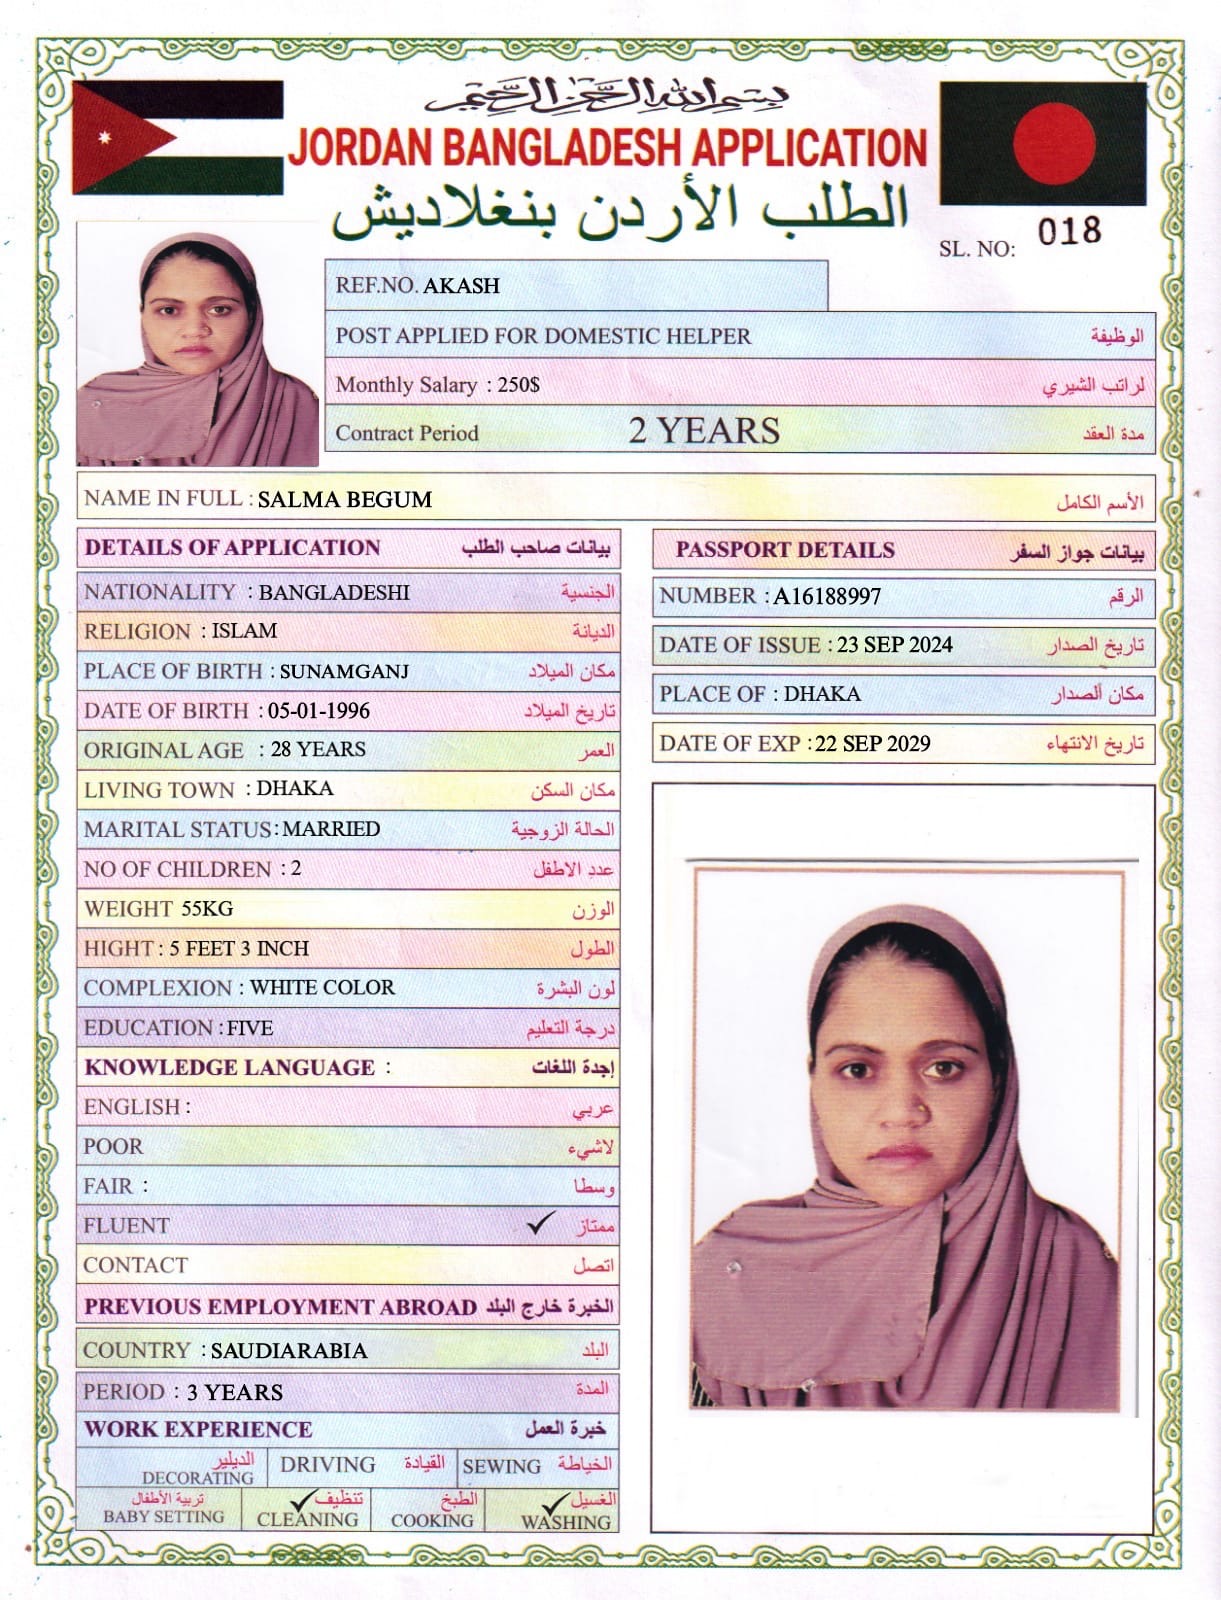 بسم الله الرحمن الرحيم
JORDAN BANGLADESH APPLICATION
الطلب الأردن بنغلاديش
SL. NO: 018
REF.NO. AKASH
POST APPLIED FOR DOMESTIC HELPER الوظيفة
Monthly Salary : 250$ لراتب الشيري
Contract Period 2 YEARS مدة العقد
NAME IN FULL : SALMA BEGUM الأسم الكامل
DETAILS OF APPLICATION بيانات صاحب الطلب
NATIONALITY : BANGLADESHI الجنسية
RELIGION : ISLAM الديانة
PLACE OF BIRTH : SUNAMGANJ مكان الميلاد
DATE OF BIRTH : 05-01-1996 تاريخ الميلاد
ORIGINAL AGE : 28 YEARS العمر
LIVING TOWN : DHAKA مكان السكن
MARITAL STATUS: MARRIED الحالة الزوجية
NO OF CHILDREN : 2 عدد الاطفل
WEIGHT 55KG الوزن
HIGHT : 5 FEET 3 INCH الطول
COMPLEXION : WHITE COLOR لون البشرة
EDUCATION : FIVE درجة التعليم
KNOWLEDGE LANGUAGE : إجدة اللغات
ENGLISH : عربي
POOR لاشيء
FAIR : وسطا
FLUENT ✓ ممتاز
CONTACT اتصل
PREVIOUS EMPLOYMENT ABROAD الخبرة خارج البلد
COUNTRY : SAUDIARABIA البلد
PERIOD : 3 YEARS المدة
WORK EXPERIENCE خبرة العمل
الديلير DECORATING
DRIVING القيادة
SEWING الخياطة
تربية الأطفال BABY SETTING
✓ تنظيف CLEANING
الطبخ COOKING
✓ الغسيل WASHING
PASSPORT DETAILS بيانات جواز السفر
NUMBER : A16188997 الرقم
DATE OF ISSUE : 23 SEP 2024 تاريخ الصدار
PLACE OF : DHAKA مكان ألصدار
DATE OF EXP : 22 SEP 2029 تاريخ الانتهاء